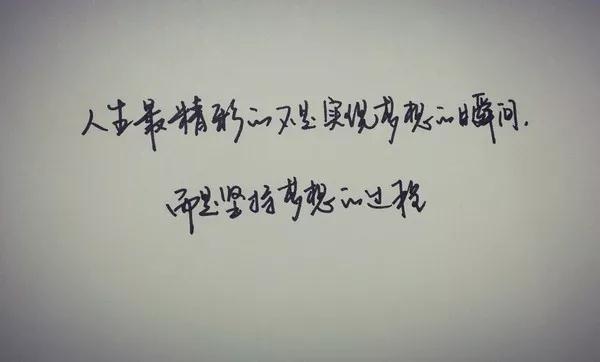 人生最精彩的不是实现梦想的瞬间.
而是坚持梦想的过程